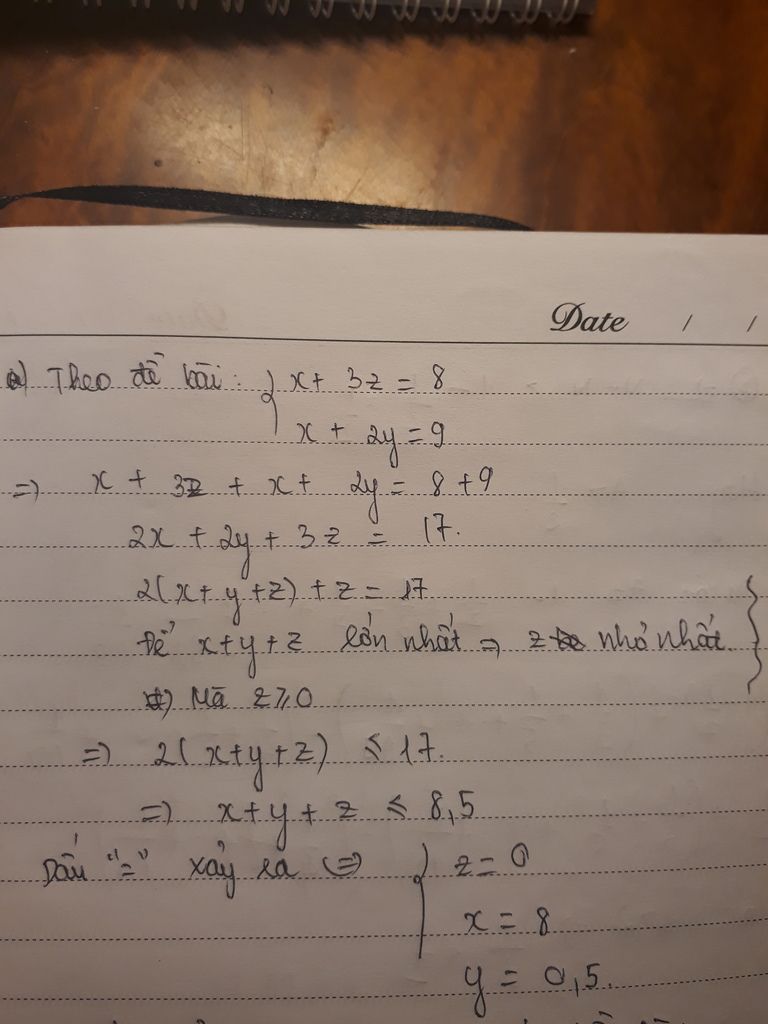 Date / /
a) Theo đề bài: { x + 3z = 8
x + 2y = 9
=) x + 3z + x + 2y = 8 + 9
2x + 2y + 3z = 17.
2(x + y + z) + z = 17
Để x+y+z lớn nhất => z nhỏ nhất.
Mà z ⩾ 0
=) 2(x+y+z) ⩽ 17.
=) x + y + z ⩽ 8,5
Dấu "=" xảy ra (=) { z = 0
x = 8
y = 0,5.